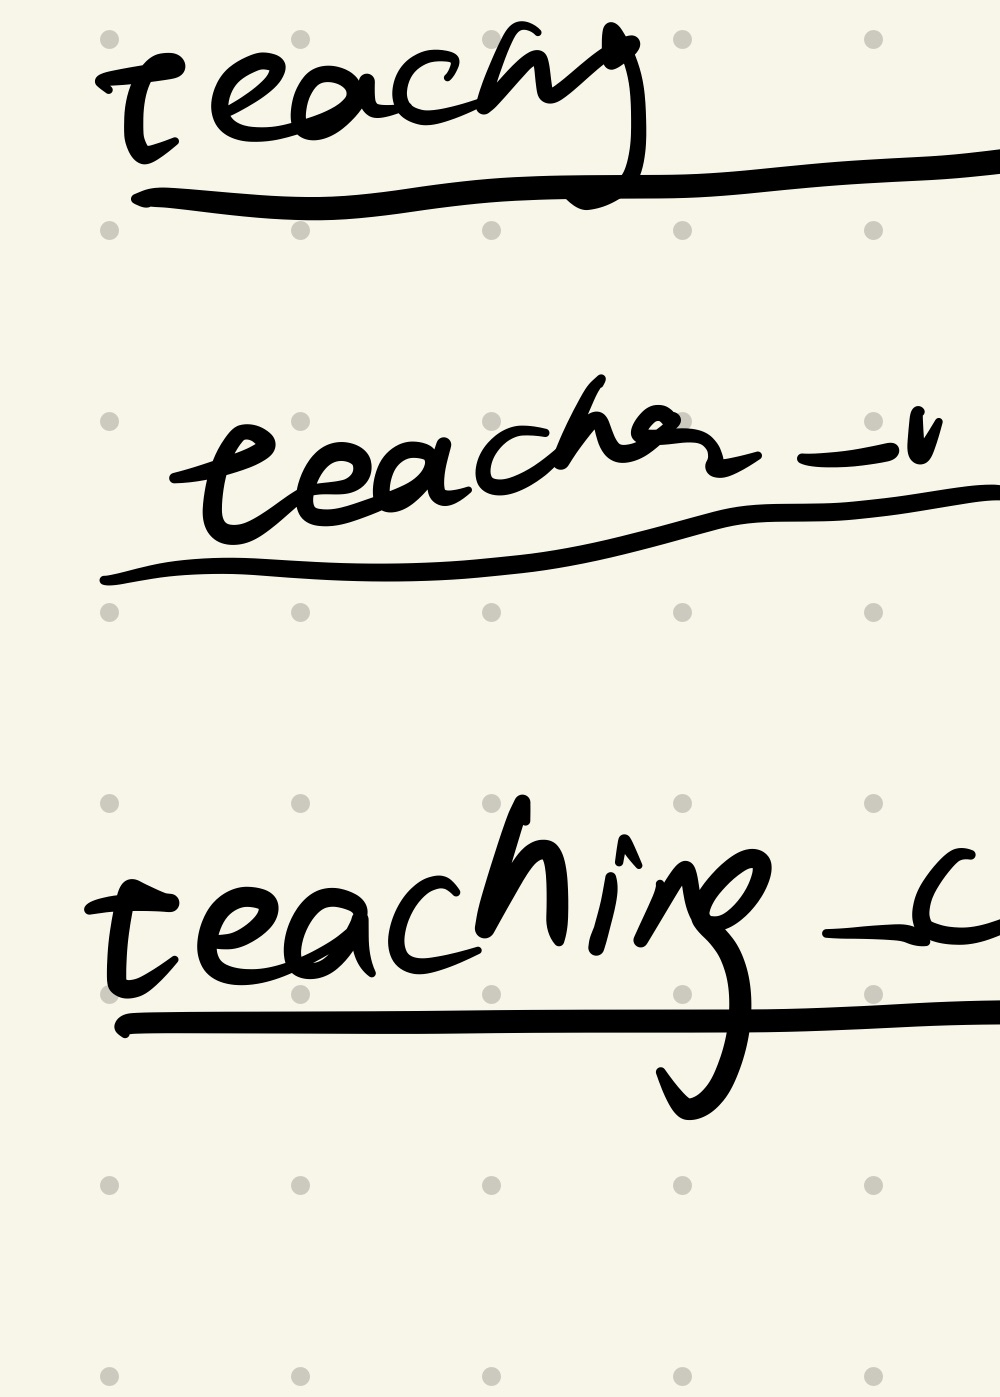 teachy
teacher_
teaching_